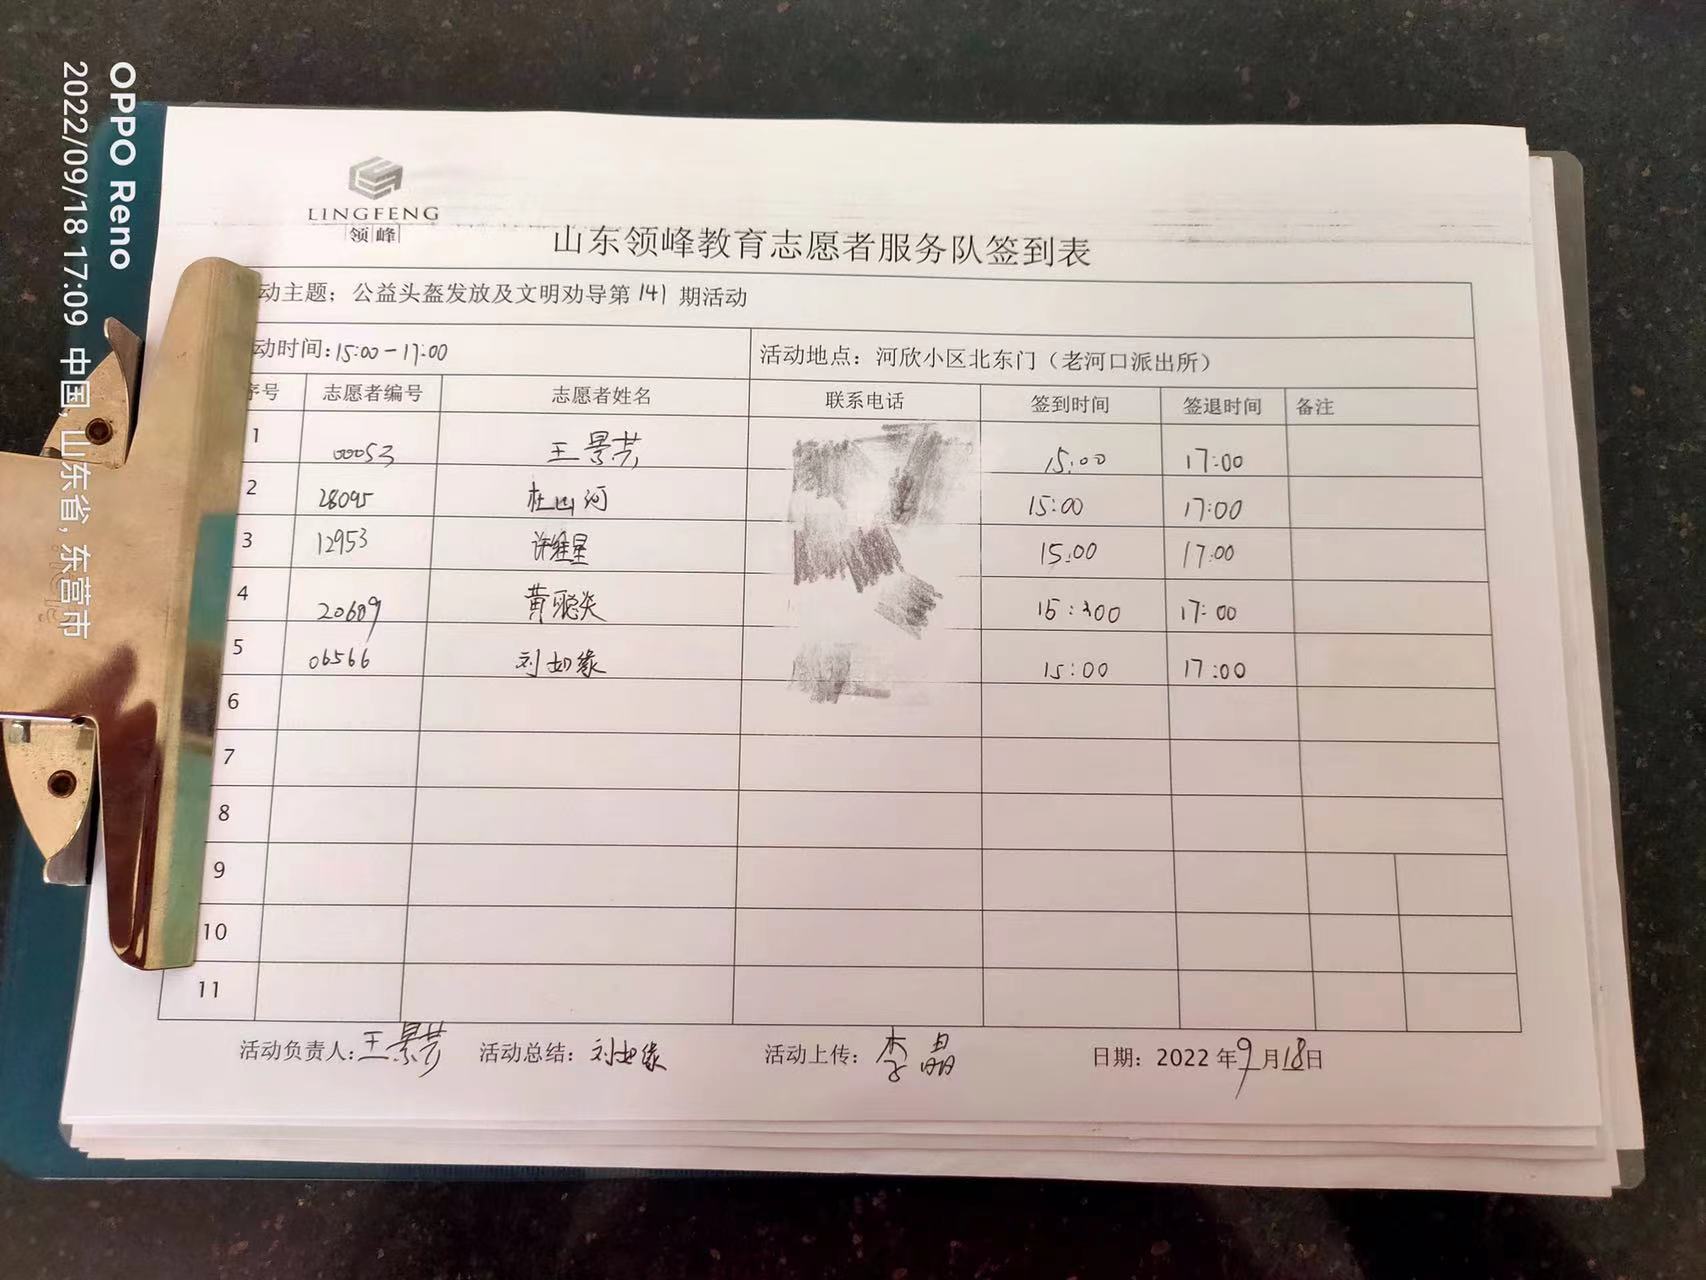 OPPO Reno
2022/09/18 17:09 中国,山东省,东营市
LINGFENG
领峰
山东领峰教育志愿者服务队签到表
动主题；公益头盔发放及文明劝导第141期活动
动时间:15:00-17:00 活动地点：河欣小区北东门（老河口派出所）
序号 志愿者编号 志愿者姓名 联系电话 签到时间 签退时间 备注
1 00053 王景芸 15:00 17:00
2 28095 杜山河 15:00 17:00
3 12953 许维星 15:00 17:00
4 20689 黄聪炎 17:00
5 06566 刘如缘 15:00 17:00
6
7
8
9
10
11
活动负责人:王景芸 活动总结：刘如缘 活动上传：李晶 日期：2022年9月18日